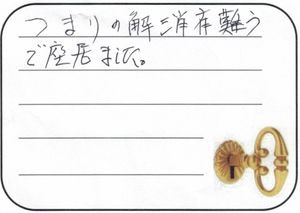 つまりの解消有難う
で座居ました。